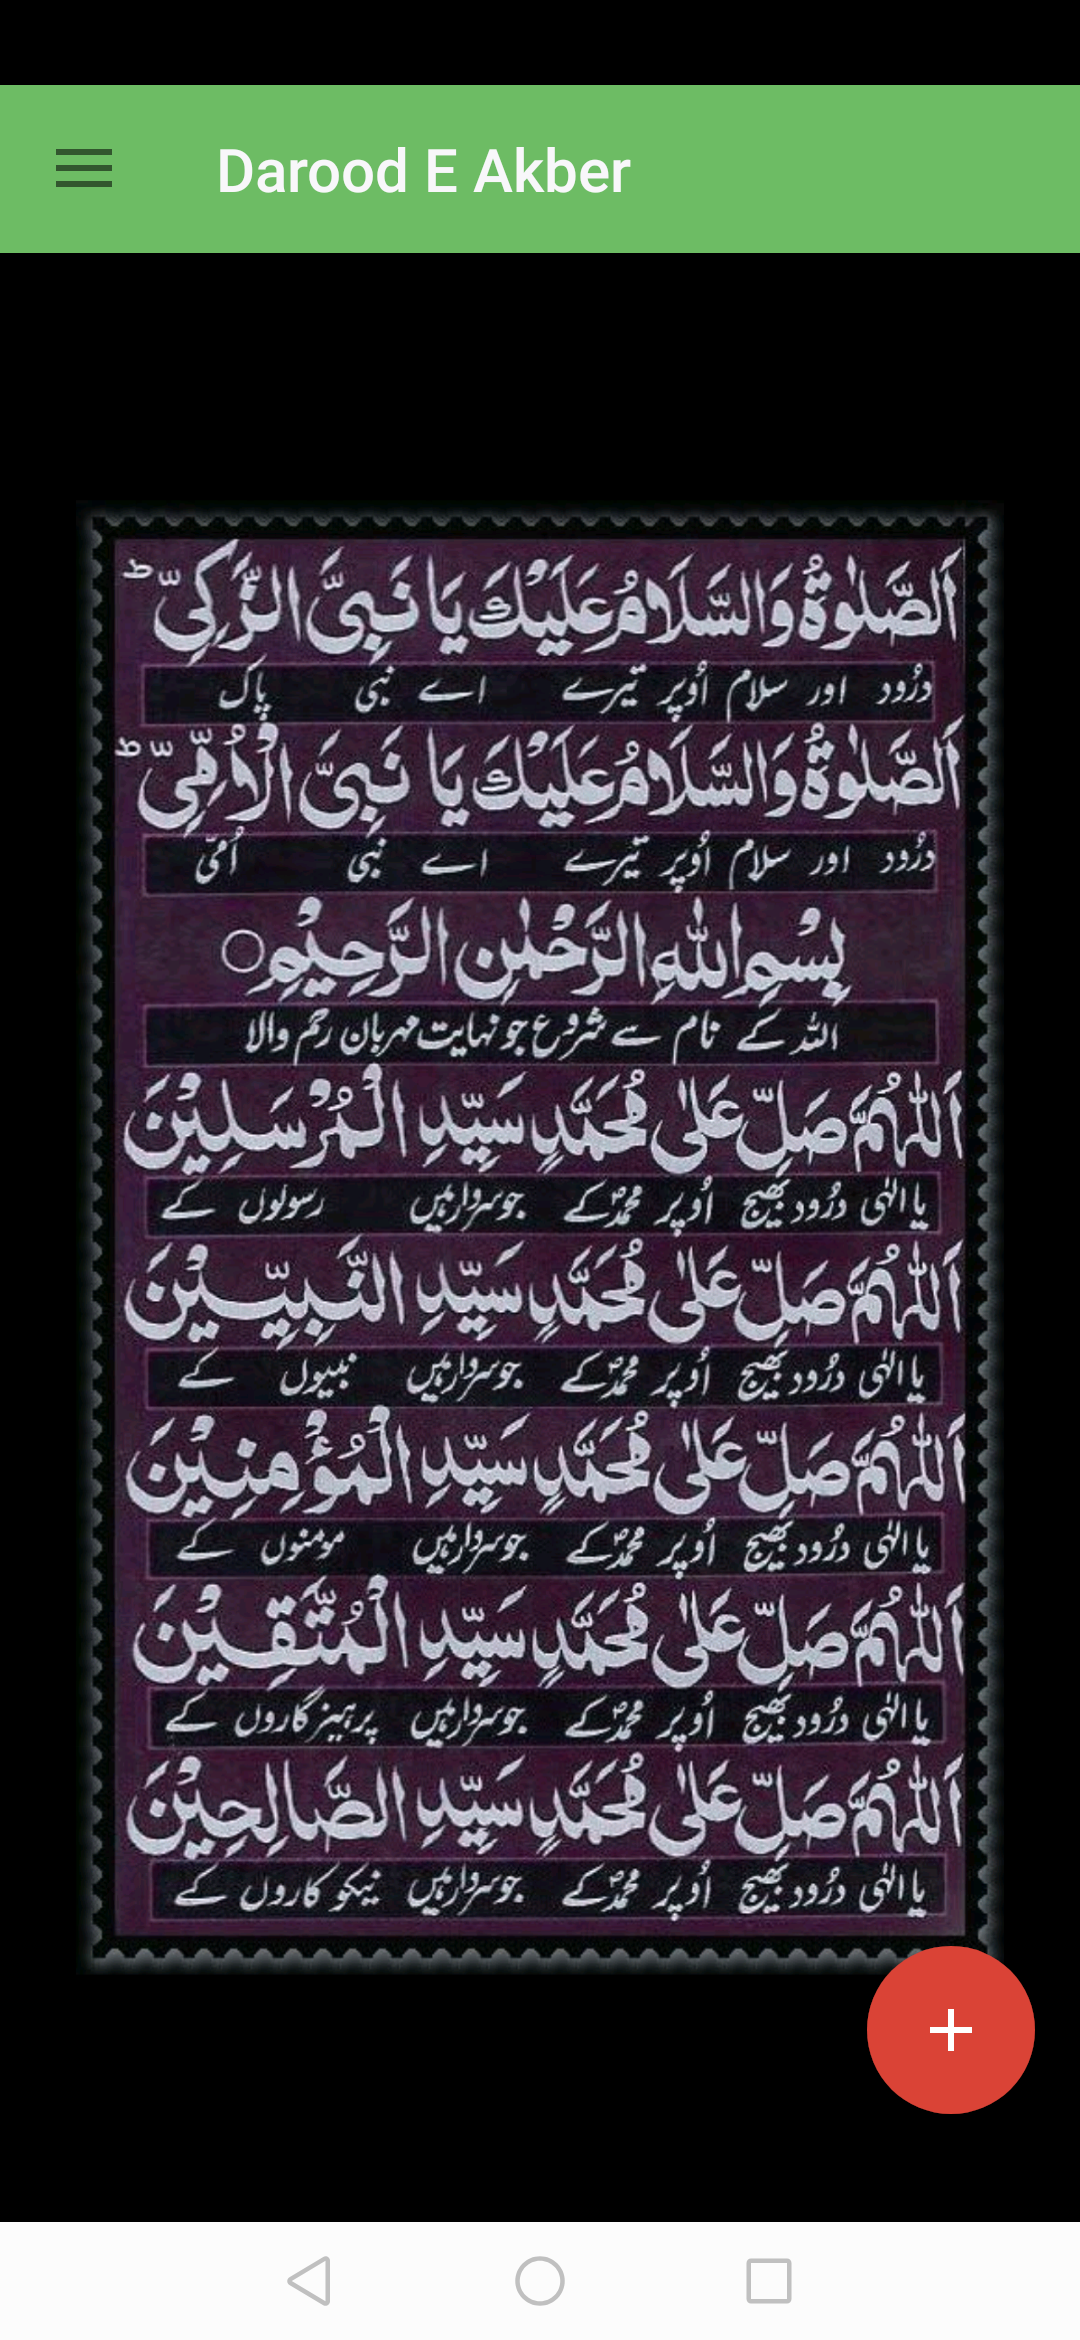 Darood E Akber
اَلصَّلٰوةُ وَالسَّلَامُ عَلَيْكَ يَا نَبِىَّ الزَّكِىِّ ؕ
درُود اور سلام اُوپر تیرے اے نبی پاک
اَلصَّلٰوةُ وَالسَّلَامُ عَلَيْكَ يَا نَبِىَّ الْاُمِّىِّ ؕ
درُود اور سلام اُوپر تیرے اے نبی اُمیّ
بِسْمِ اللّٰهِ الرَّحْمٰنِ الرَّحِيْمِ ○
اللّٰہ کے نام سے شروع جو نہایت مہربان رحم والا
اَللّٰهُمَّ صَلِّ عَلٰى مُحَمَّدٍ سَيِّدِ الْمُرْسَلِيْنَ
یا الٰہی درُود بھیج اُوپر محمدؐ کے جو سردار ہیں رسولوں کے
اَللّٰهُمَّ صَلِّ عَلٰى مُحَمَّدٍ سَيِّدِ النَّبِيِّيْنَ
یا الٰہی درُود بھیج اُوپر محمدؐ کے جو سردار ہیں نبیوں کے
اَللّٰهُمَّ صَلِّ عَلٰى مُحَمَّدٍ سَيِّدِ الْمُؤْمِنِيْنَ
یا الٰہی درُود بھیج اُوپر محمدؐ کے جو سردار ہیں مومنوں کے
اَللّٰهُمَّ صَلِّ عَلٰى مُحَمَّدٍ سَيِّدِ الْمُتَّقِيْنَ
یا الٰہی درُود بھیج اُوپر محمدؐ کے جو سردار ہیں پرہیزگاروں کے
اَللّٰهُمَّ صَلِّ عَلٰى مُحَمَّدٍ سَيِّدِ الصَّالِحِيْنَ
یا الٰہی درُود بھیج اُوپر محمدؐ کے جو سردار ہیں نیکو کاروں کے